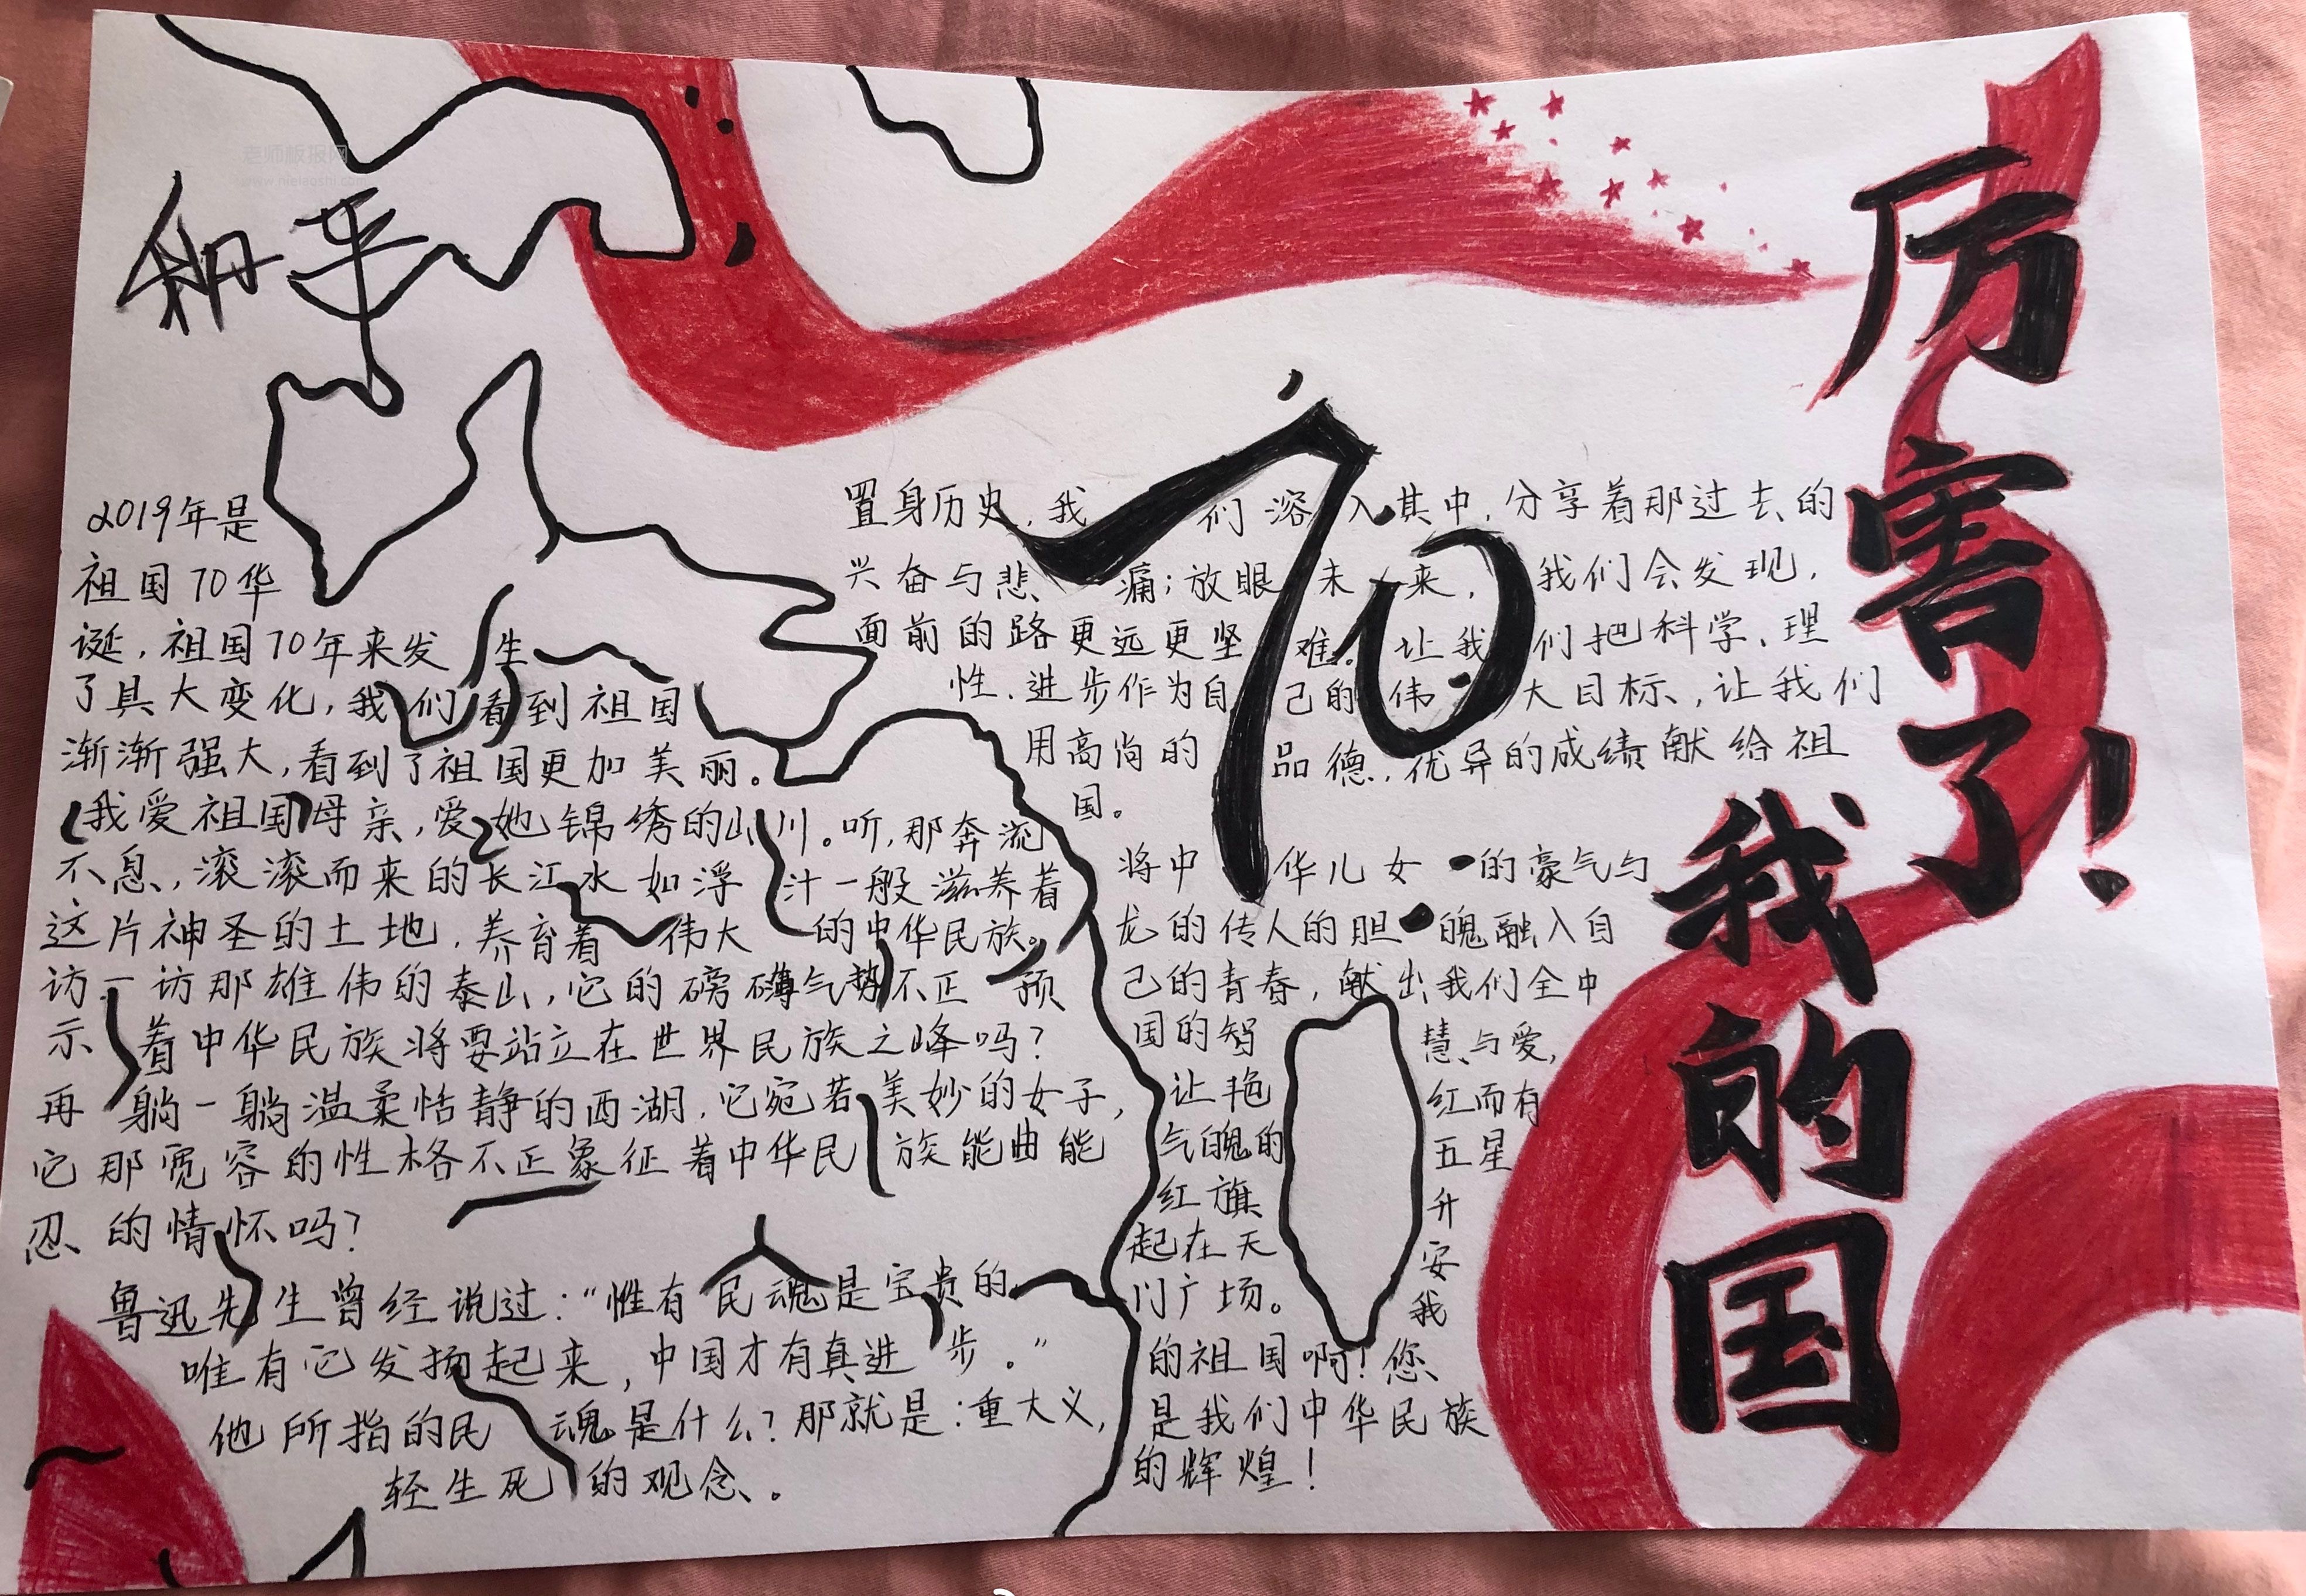 老师板报网
和平
厉害了!
我的国
70
2019年是
祖国70华
诞,祖国70年来发生
了具大变化,我们看到祖国
渐渐强大,看到了祖国更加美丽。
我爱祖国母亲,爱她锦绣的山川。听,那奔流
不息,滚滚而来的长江水如浮汁一般滋养着
这片神圣的土地,养育着伟大的中华民族。
访一访那雄伟的泰山,它的磅礴气势不正预
示着中华民族将要站立在世界民族之峰吗?
再躺一躺温柔恬静的西湖,它宛若美妙的女子,
它那宽容的性格不正象征着中华民族能曲能
忍的情怀吗?
鲁迅先生曾经说过:“惟有民魂是宝贵的
唯有它发扬起来,中国才有真进步。”
他所指的民魂是什么?那就是:重大义,
轻生死的观念。
置身历史,我们溶入其中,分享着那过去的
兴奋与悲痛;放眼未来,我们会发现,
面前的路更远更坚难。让我们把科学、理
性、进步作为自己的伟大目标、让我们
用高尚的品德,优异的成绩献给祖
国。
将中华儿女的豪气与
龙的传人的胆魄融入自
己的青春,献出我们全中
国的智慧与爱,
让艳红而有
气魄的五星
红旗升
起在天安
门广场。我
的祖国啊!您
是我们中华民族
的辉煌!